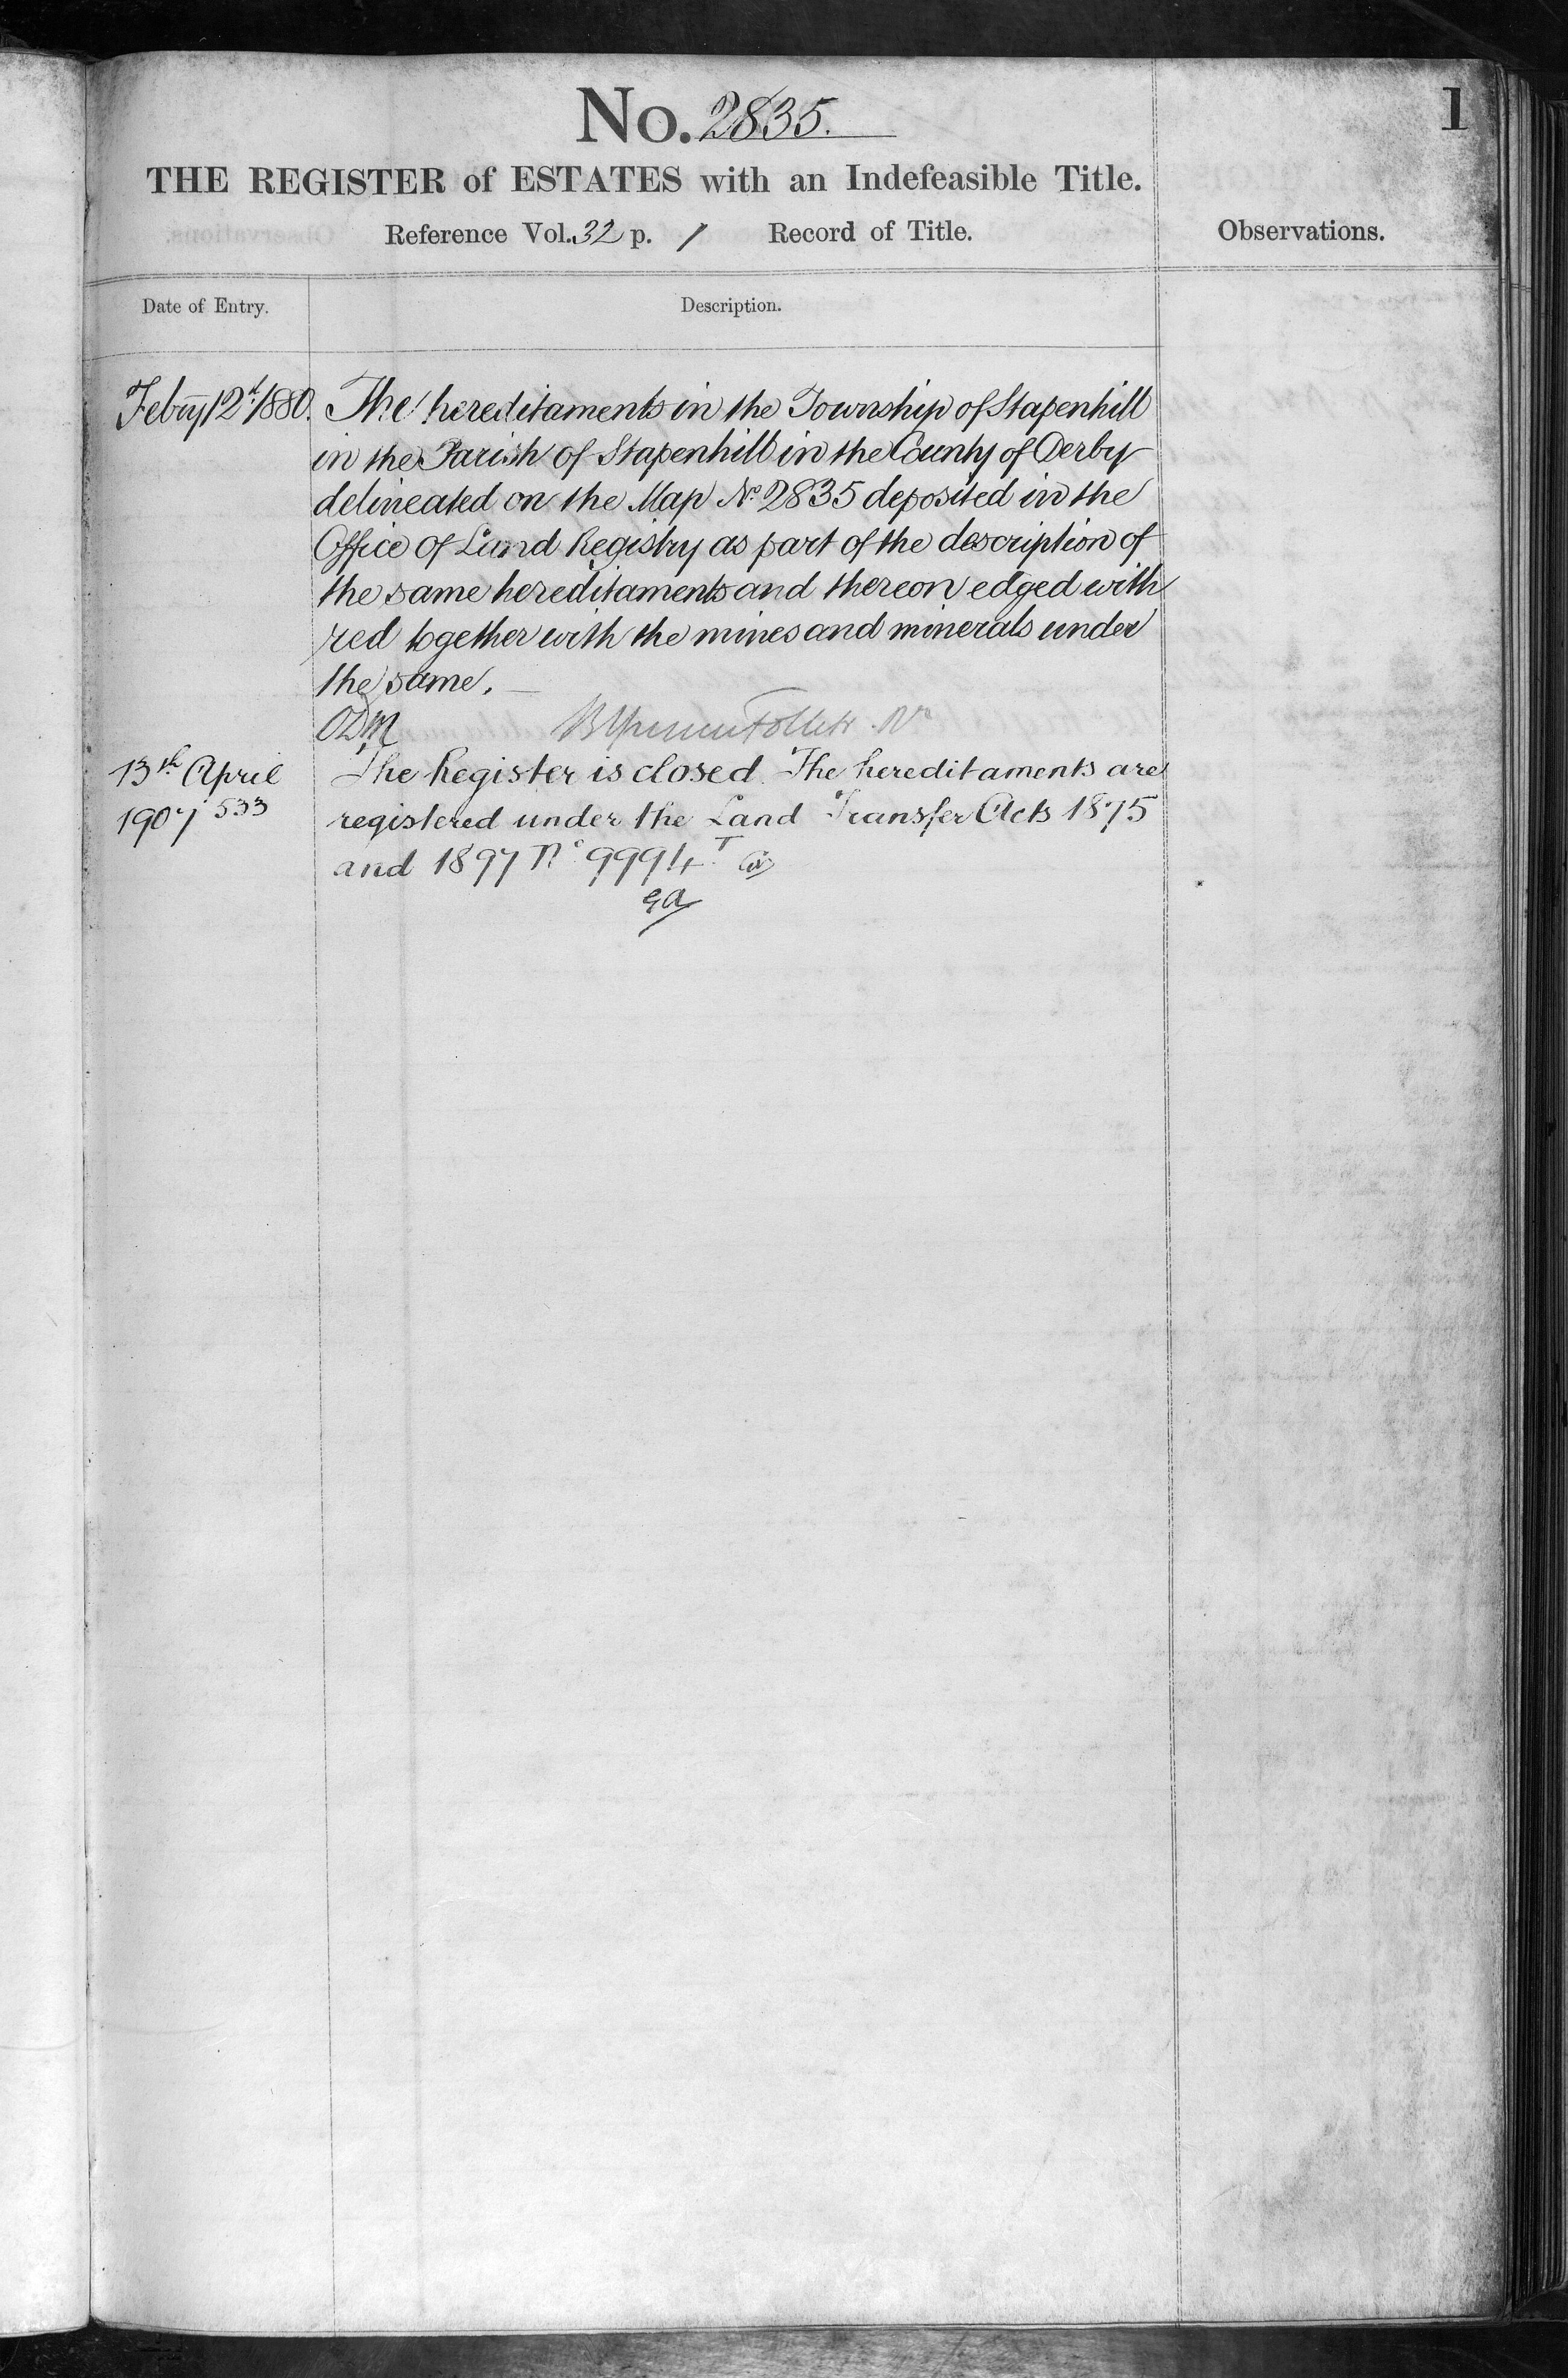 1
No. 2835.
THE REGISTER of ESTATES with an Indefeasible Title.
Reference Vol. 32 p. 1 Record of Title.
Observations.
Date of Entry.
Description.
Febry 12th 1880. The hereditaments in the Township of Stapenhill
in the Parish of Stapenhill in the County of Derby
delineated on the Map No. 2835 deposited in the
Office of Land Registry as part of the description of
the same hereditaments and thereon edged with
red together with the mines and minerals under
the same.
ODM
13th April The Register is closed. The hereditaments are
1907 533 registered under the Land Transfer Acts 1875
and 1897 No 9994 T